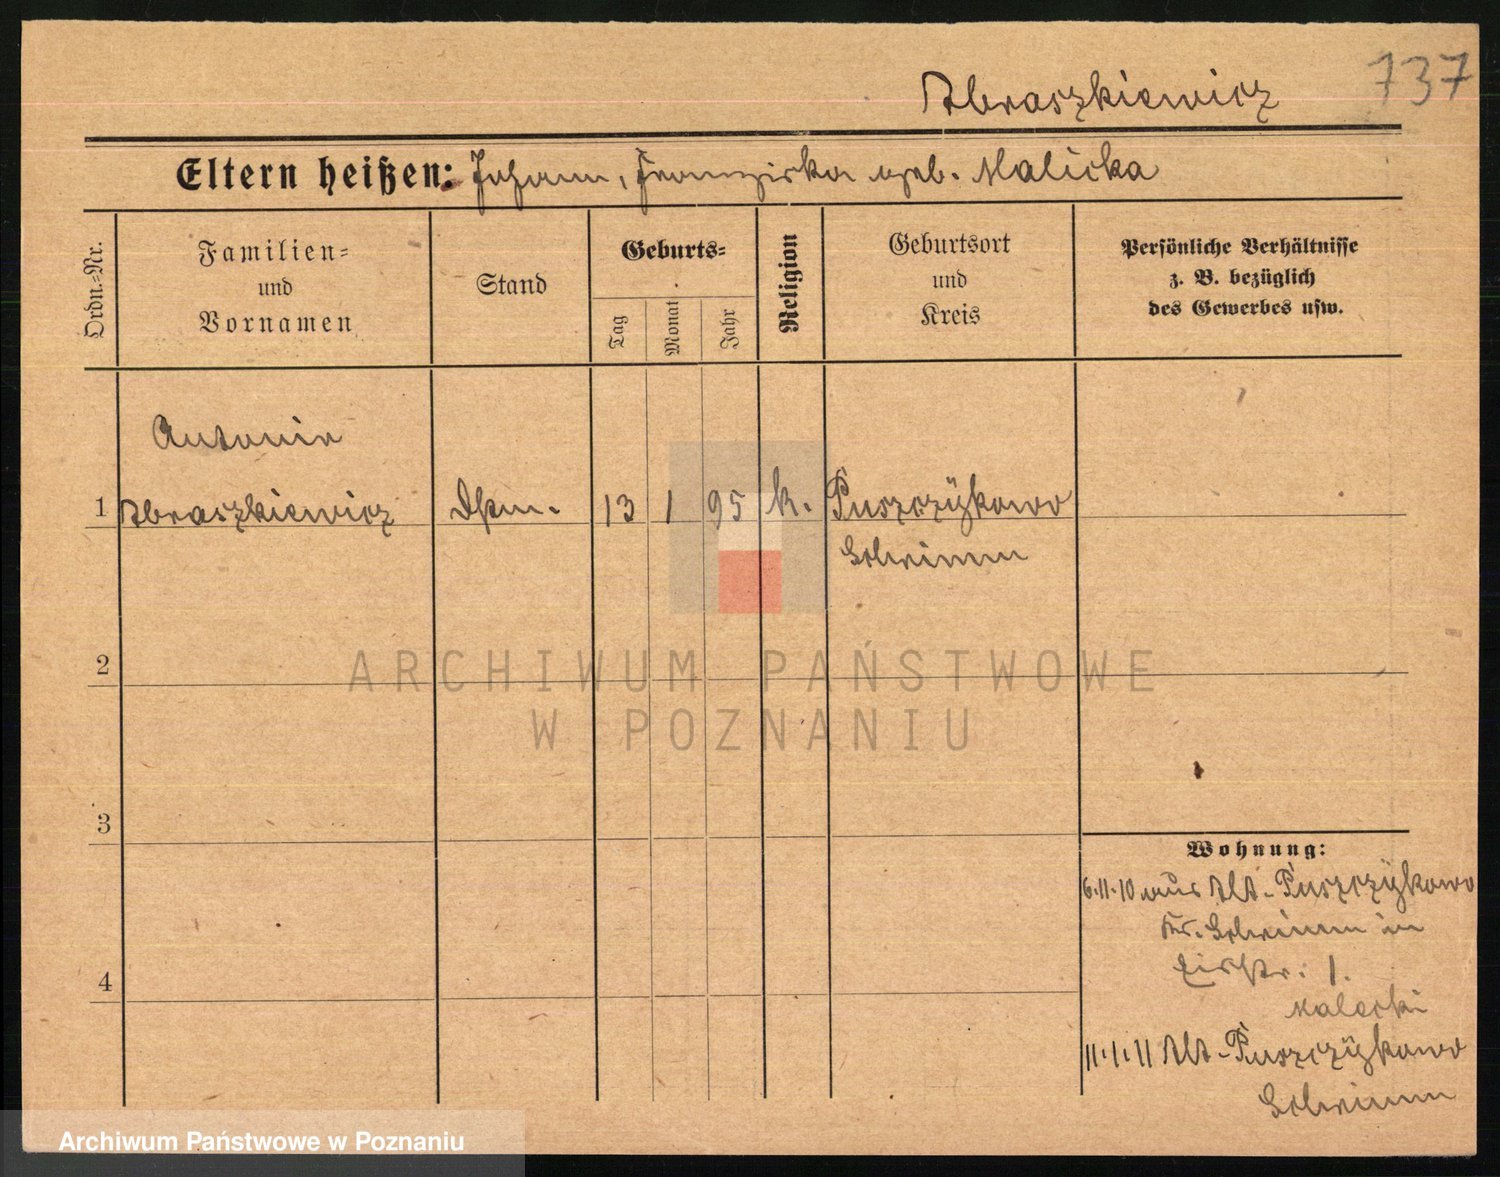 737
Abraszkiewicz
Eltern heißen: Johann, Franziska geb. Malicka
Ordn.-Nr.
Familien-
und
Vornamen
Stand
Geburts-
Tag
Monat
Jahr
Religion
Geburtsort
und
Kreis
Persönliche Verhältnisse
z. B. bezüglich
des Gewerbes usw.
Antonie
1 Abraszkiewicz 13 1 95 k. Puszczykowo
Schrimm
2
3
4
Wohnung:
6.11.10 aus Alt-Puszczykowo
Kr. Schrimm in
1.
Malecki
11.1.11 Alt-Puszczykowo
Schrimm
ARCHIWUM PAŃSTWOWE
W POZNANIU
Archiwum Państwowe w Poznaniu